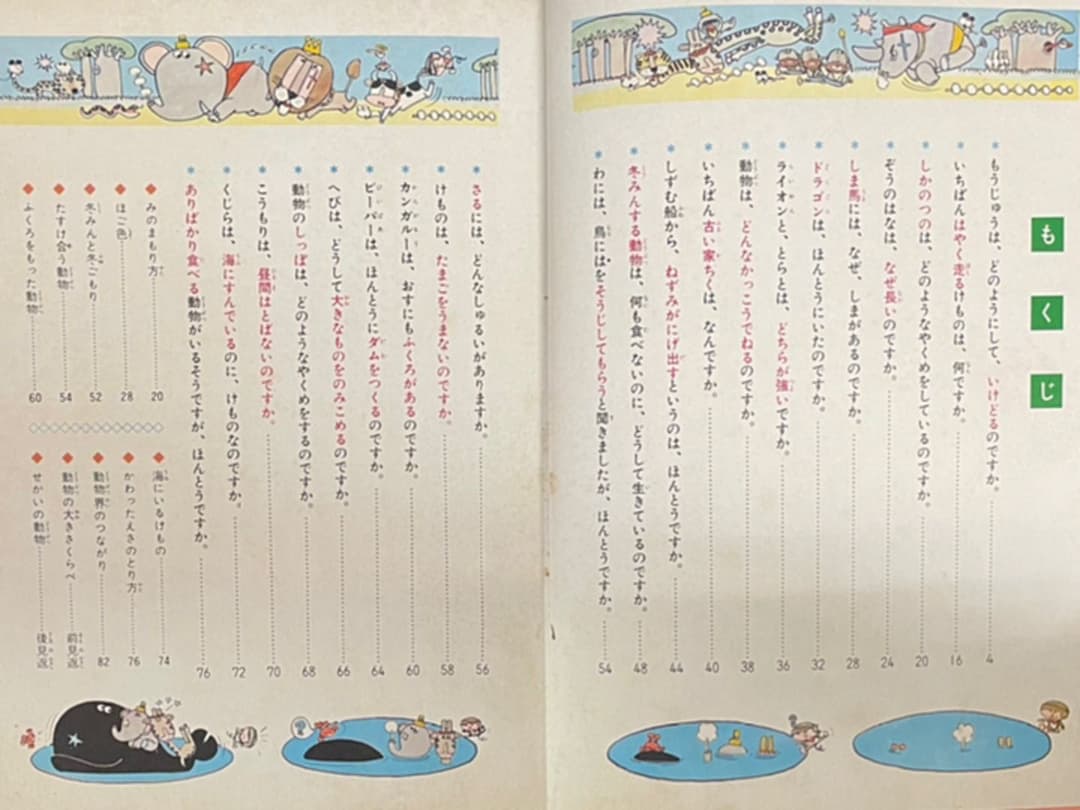 もくじ
もうじゅうは、どのようにして、いけどるのですか。 4
いちばんはやく走るけものは、何ですか。 16
しかのつのは、どのようなやくめをしているのですか。 20
ぞうのはなは、なぜ長いのですか。 24
しま馬には、なぜ、しまがあるのですか。 28
ドラゴンは、ほんとうにいたのですか。 32
ライオンと、とらとは、どちらが強いですか。 36
動物は、どんなかっこうでねるのですか。 38
いちばん古い家ちくは、なんですか。 40
しずむ船から、ねずみがにげ出すというのは、ほんとうですか。 44
冬みんする動物は、何も食べないのに、どうして生きているのですか。 48
わには、鳥にはをそうじしてもらうと聞きましたが、ほんとうですか。 54
さるには、どんなしゅるいがありますか。 56
けものは、たまごをうまないのですか。 58
カンガルーは、おすにもふくろがあるのですか。 60
ビーバーは、ほんとうにダムをつくるのですか。 64
へびは、どうして大きなものをのみこめるのですか。 66
動物のしっぽは、どのようなやくめをするのですか。 68
こうもりは、昼間はとばないのですか。 70
くじらは、海にすんでいるのに、けものなのですか。 72
ありばかり食べる動物がいるそうですが、ほんとうですか。 76
みのまもり方 20
ほご色 28
冬みんと冬ごもり 52
たすけ合う動物 54
ふくろをもった動物 60
海にいるけもの 74
かわったえさのとり方 76
動物界のつながり 82
動物の大きさくらべ 前見返
せかいの動物 後見返